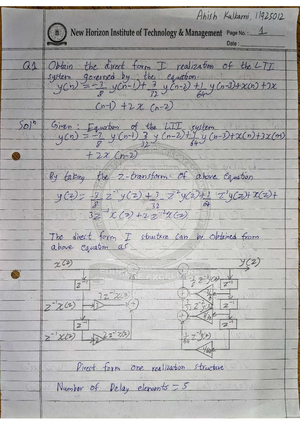 Ahish Kulkarni, 11925012
New Horizon Institute of Technology & Management Page No.: 1
Date:
Q.1 Obtain the direct form I realization of the LTI
system governed by the equation.
y(n) = -3/8 y(n-1) + 3/32 y(n-2) + 1/64 y(n-3) + x(n) + 3x
(n-1) + 2x (n-2)
Solⁿ Given: Equation of the LTI system
y(n) = -3/8 y(n-1) 3/32 y(n-2) + 1/64 y(n-3) + x(n) + 3x(n-1)
+ 2x (n-2)
By taking the z-transform of above equation
y(z) = -3/8 z⁻¹ y(z) + 3/32 z⁻² y(z) + 1/64 z⁻³ y(z) + x(z) +
3z⁻¹ x(z) + 2z⁻² x(z)
The direct form I structure can be obtained from
above equation as
x(z) y(z)
z⁻¹ z⁻¹
z⁻¹x(z) 3z⁻¹x(z)
z⁻¹ z⁻¹
z⁻¹x(z) 2z⁻²x(z)
z⁻¹
Direct form one realization structure
Number of Delay elements = 5